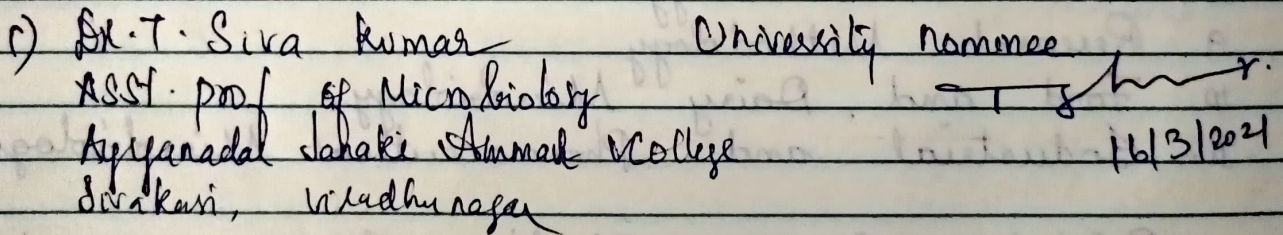 r) Dr. T. Siva Kumar University nominee
Asst. prof of Microbiology
Ayyanadal Janaki Ammal College 16/3/2021
Sivakasi, Virudhunagar